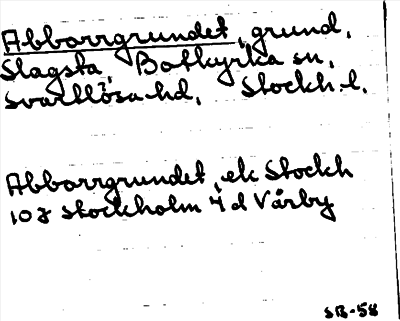 Abborrgrundet, grund,
Slagsta, Botkyrka sn,
Svartlösa hd, Stockh. l.
Abborrgrundet, ek Stockh
10 J Stockholm 4 d Vårby
SB-58